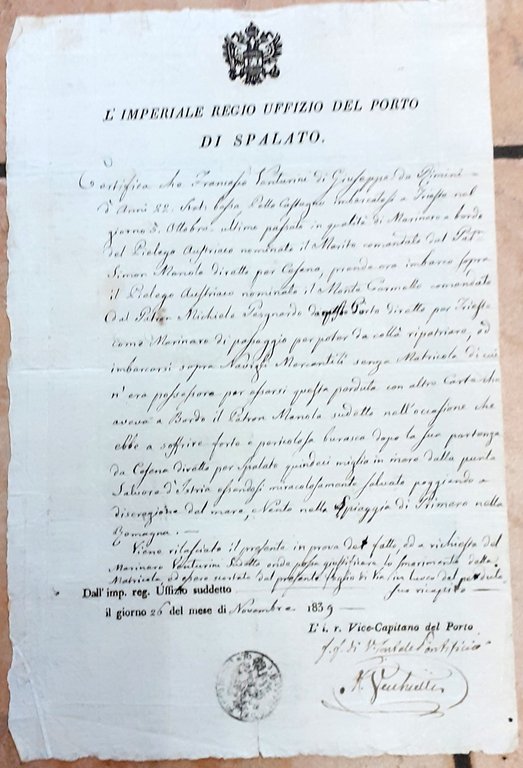 L'IMPERIALE REGIO UFFIZIO DEL PORTO
DI SPALATO.
Certifica che Francesco Venturini di Giuseppe da Rimini
d'Anni 22 Stat. Capa Pello Castagno imbarcatosi a Trieste nel
giorno 5. Ottobre ultimo passato in qualità di Marinaro a bordo
del Pielego Austriaco nominato il Marito comandato dal
Simon Manola diretto per Cesena, prende ora imbarco sopra
il Pielego Austriaco nominato il Monte Carmello comandato
dal Patron Michiele da questo Porto diretto per Trieste
come Marinaro di passaggio per poter da collà ripatriare, od
imbarcarsi sopra Navigli Mercantili senza Matricola di cui
n'era possessore per essersi questa perduta con altre Carte che
aveva a Bordo il Patron Manola sudetto nell'occasione che
ebbe a soffrire forte e pericolosa burasca dopo la sua partenza
da Cesena diretto per Spalato quindeci miglia in mare dalla punta
d'Istria essendosi miracolosamente salvato poggiando a
discrezione del mare, e Vento nella Spiaggia di Primaro nella
Romagna. —
Viene rilasciato il presente in prova del fatto, ed a richiesta del
Marinaro Venturini sudetto onde possa giustificare lo smarimento della
Matricola, ed essere scortato dal presente foglio di Via in luogo del perduto
Dall'imp. reg. Uffizio suddetto
suo ricapito —
il giorno 26 del mese di Novembre 1839 —
L'i. r. Vice-Capitano del Porto
f.f. di V. Console Pontificio